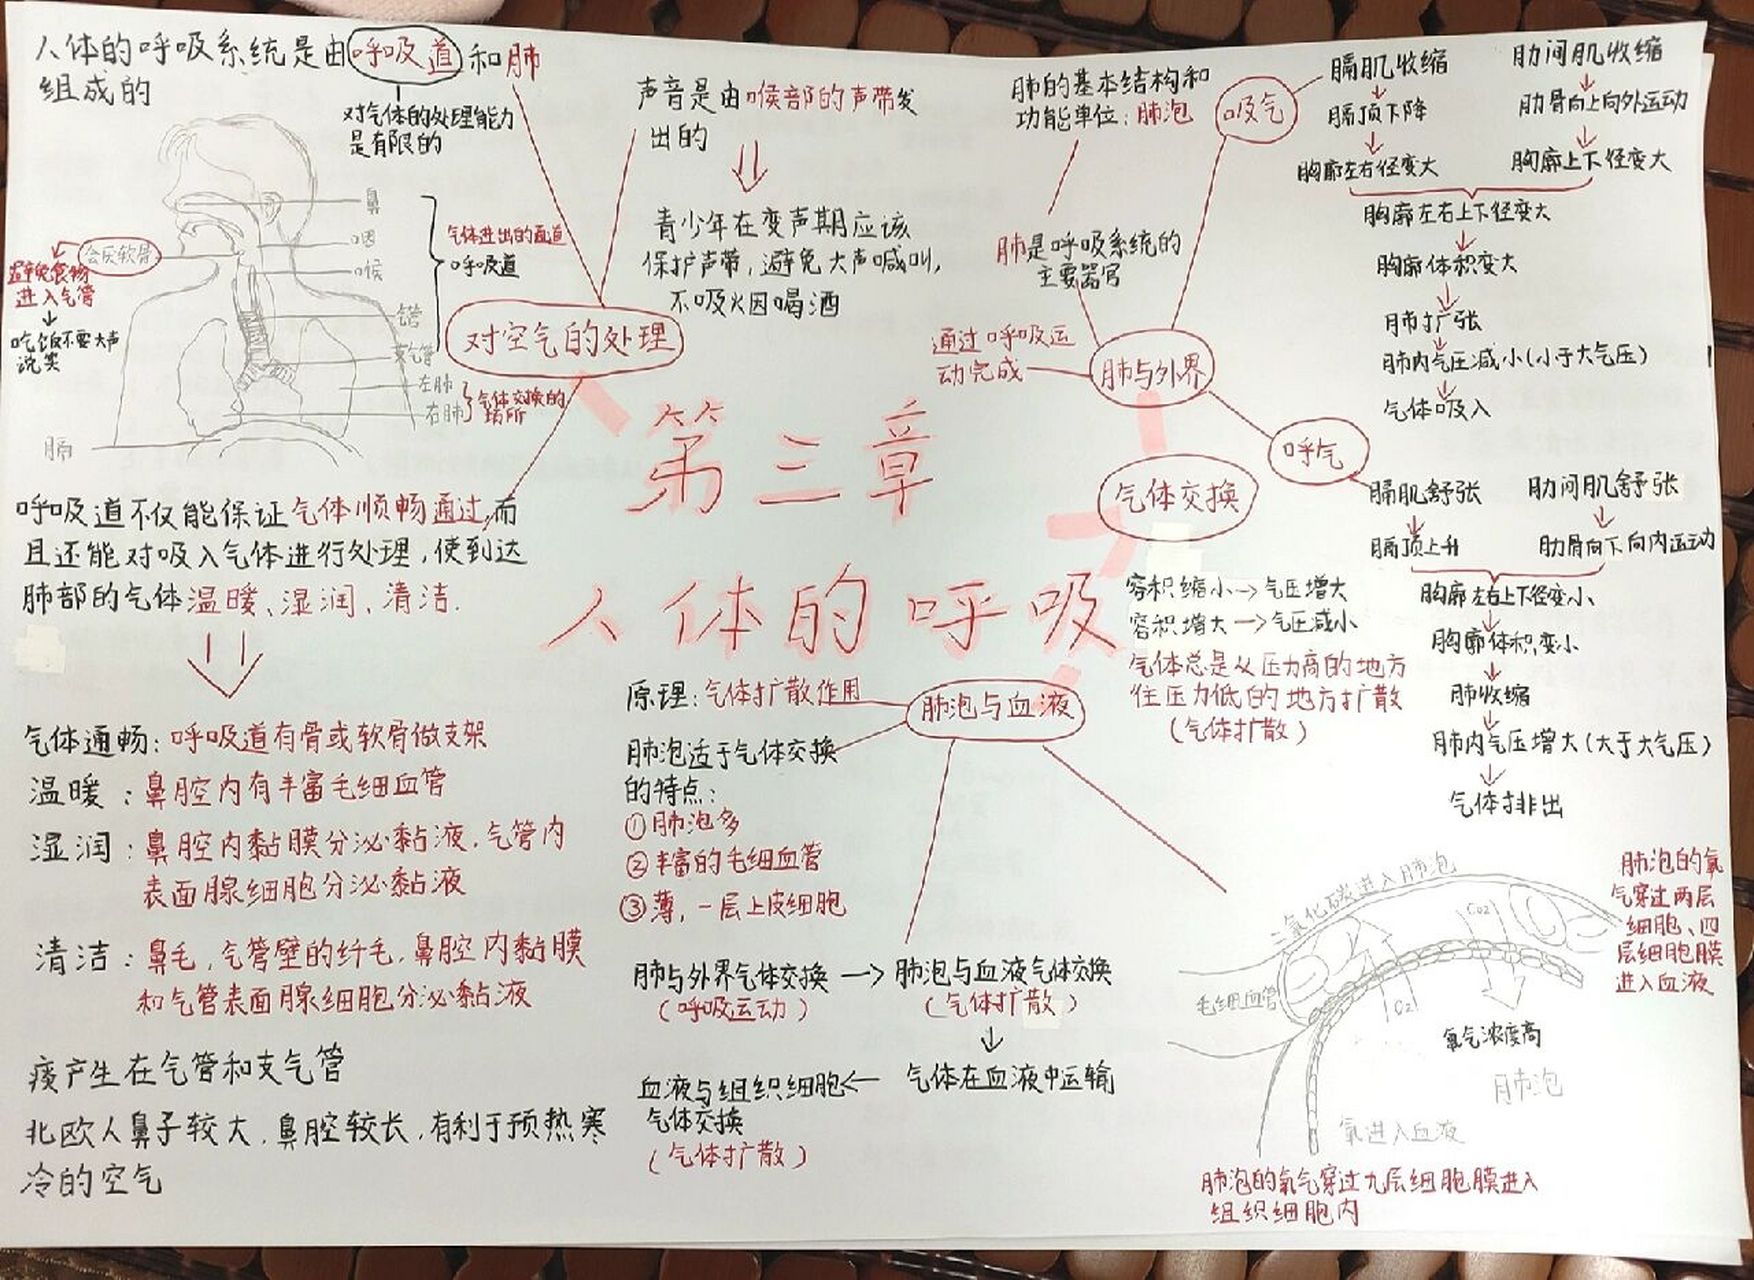 人体的呼吸系统是由呼吸道和肺
组成的
对气体的处理能力
是有限的
鼻
咽
喉
气管
支气管
左肺
右肺
膈
会厌软骨
避免食物
进入气管
吃饭不要大声
说笑
气体进出的通道
呼吸道
气体交换的
场所
对空气的处理
声音是由喉部的声带发
出的
青少年在变声期应该
保护声带,避免大声喊叫,
不吸火因喝酒
呼吸道不仅能保证气体顺畅通过,而
且还能对吸入气体进行处理,使到达
肺部的气体温暖、湿润、清洁.
气体通畅:呼吸道有骨或软骨做支架
温暖:鼻腔内有丰富毛细血管
湿润:鼻腔内黏膜分泌黏液,气管内
表面腺细胞分泌黏液
清洁:鼻毛,气管壁的纤毛,鼻腔内黏膜
和气管表面腺细胞分泌黏液
痰产生在气管和支气管
北欧人鼻子较大,鼻腔较长,有利于预热寒
冷的空气
第三章
人体的呼吸
肺的基本结构和
功能单位:肺泡
肺是呼吸系统的
主要器官
通过呼吸运
动完成
肺与外界
吸气
膈肌收缩
膈顶下降
胸廓左右径变大
肋间肌收缩
肋骨向上向外运动
胸廓上下径变大
胸廓左右上下径变大
胸廓体积变大
肺扩张
肺内气压减小(小于大气压)
气体吸入
呼气
膈肌舒张
膈顶上升
肋间肌舒张
肋骨向下向内运动
胸廓左右上下径变小
胸廓体积变小
肺收缩
肺内气压增大(大于大气压)
气体排出
气体交换
容积缩小→气压增大
容积增大→气压减小
气体总是从压力高的地方
往压力低的地方扩散
(气体扩散)
肺泡与血液
原理:气体扩散作用
肺泡适于气体交换
的特点:
①肺泡多
②丰富的毛细血管
③薄,一层上皮细胞
肺与外界气体交换→肺泡与血液气体交换
(呼吸运动)
(气体扩散)
↓
血液与组织细胞←气体在血液中运输
气体交换
(气体扩散)
二氧化碳进入肺泡
毛细血管
CO2
O2
氧气浓度高
肺泡
氧进入血液
肺泡的氧
气穿过两层
细胞、四
层细胞膜
进入血液
肺泡的氧气穿过九层细胞膜进入
组织细胞内